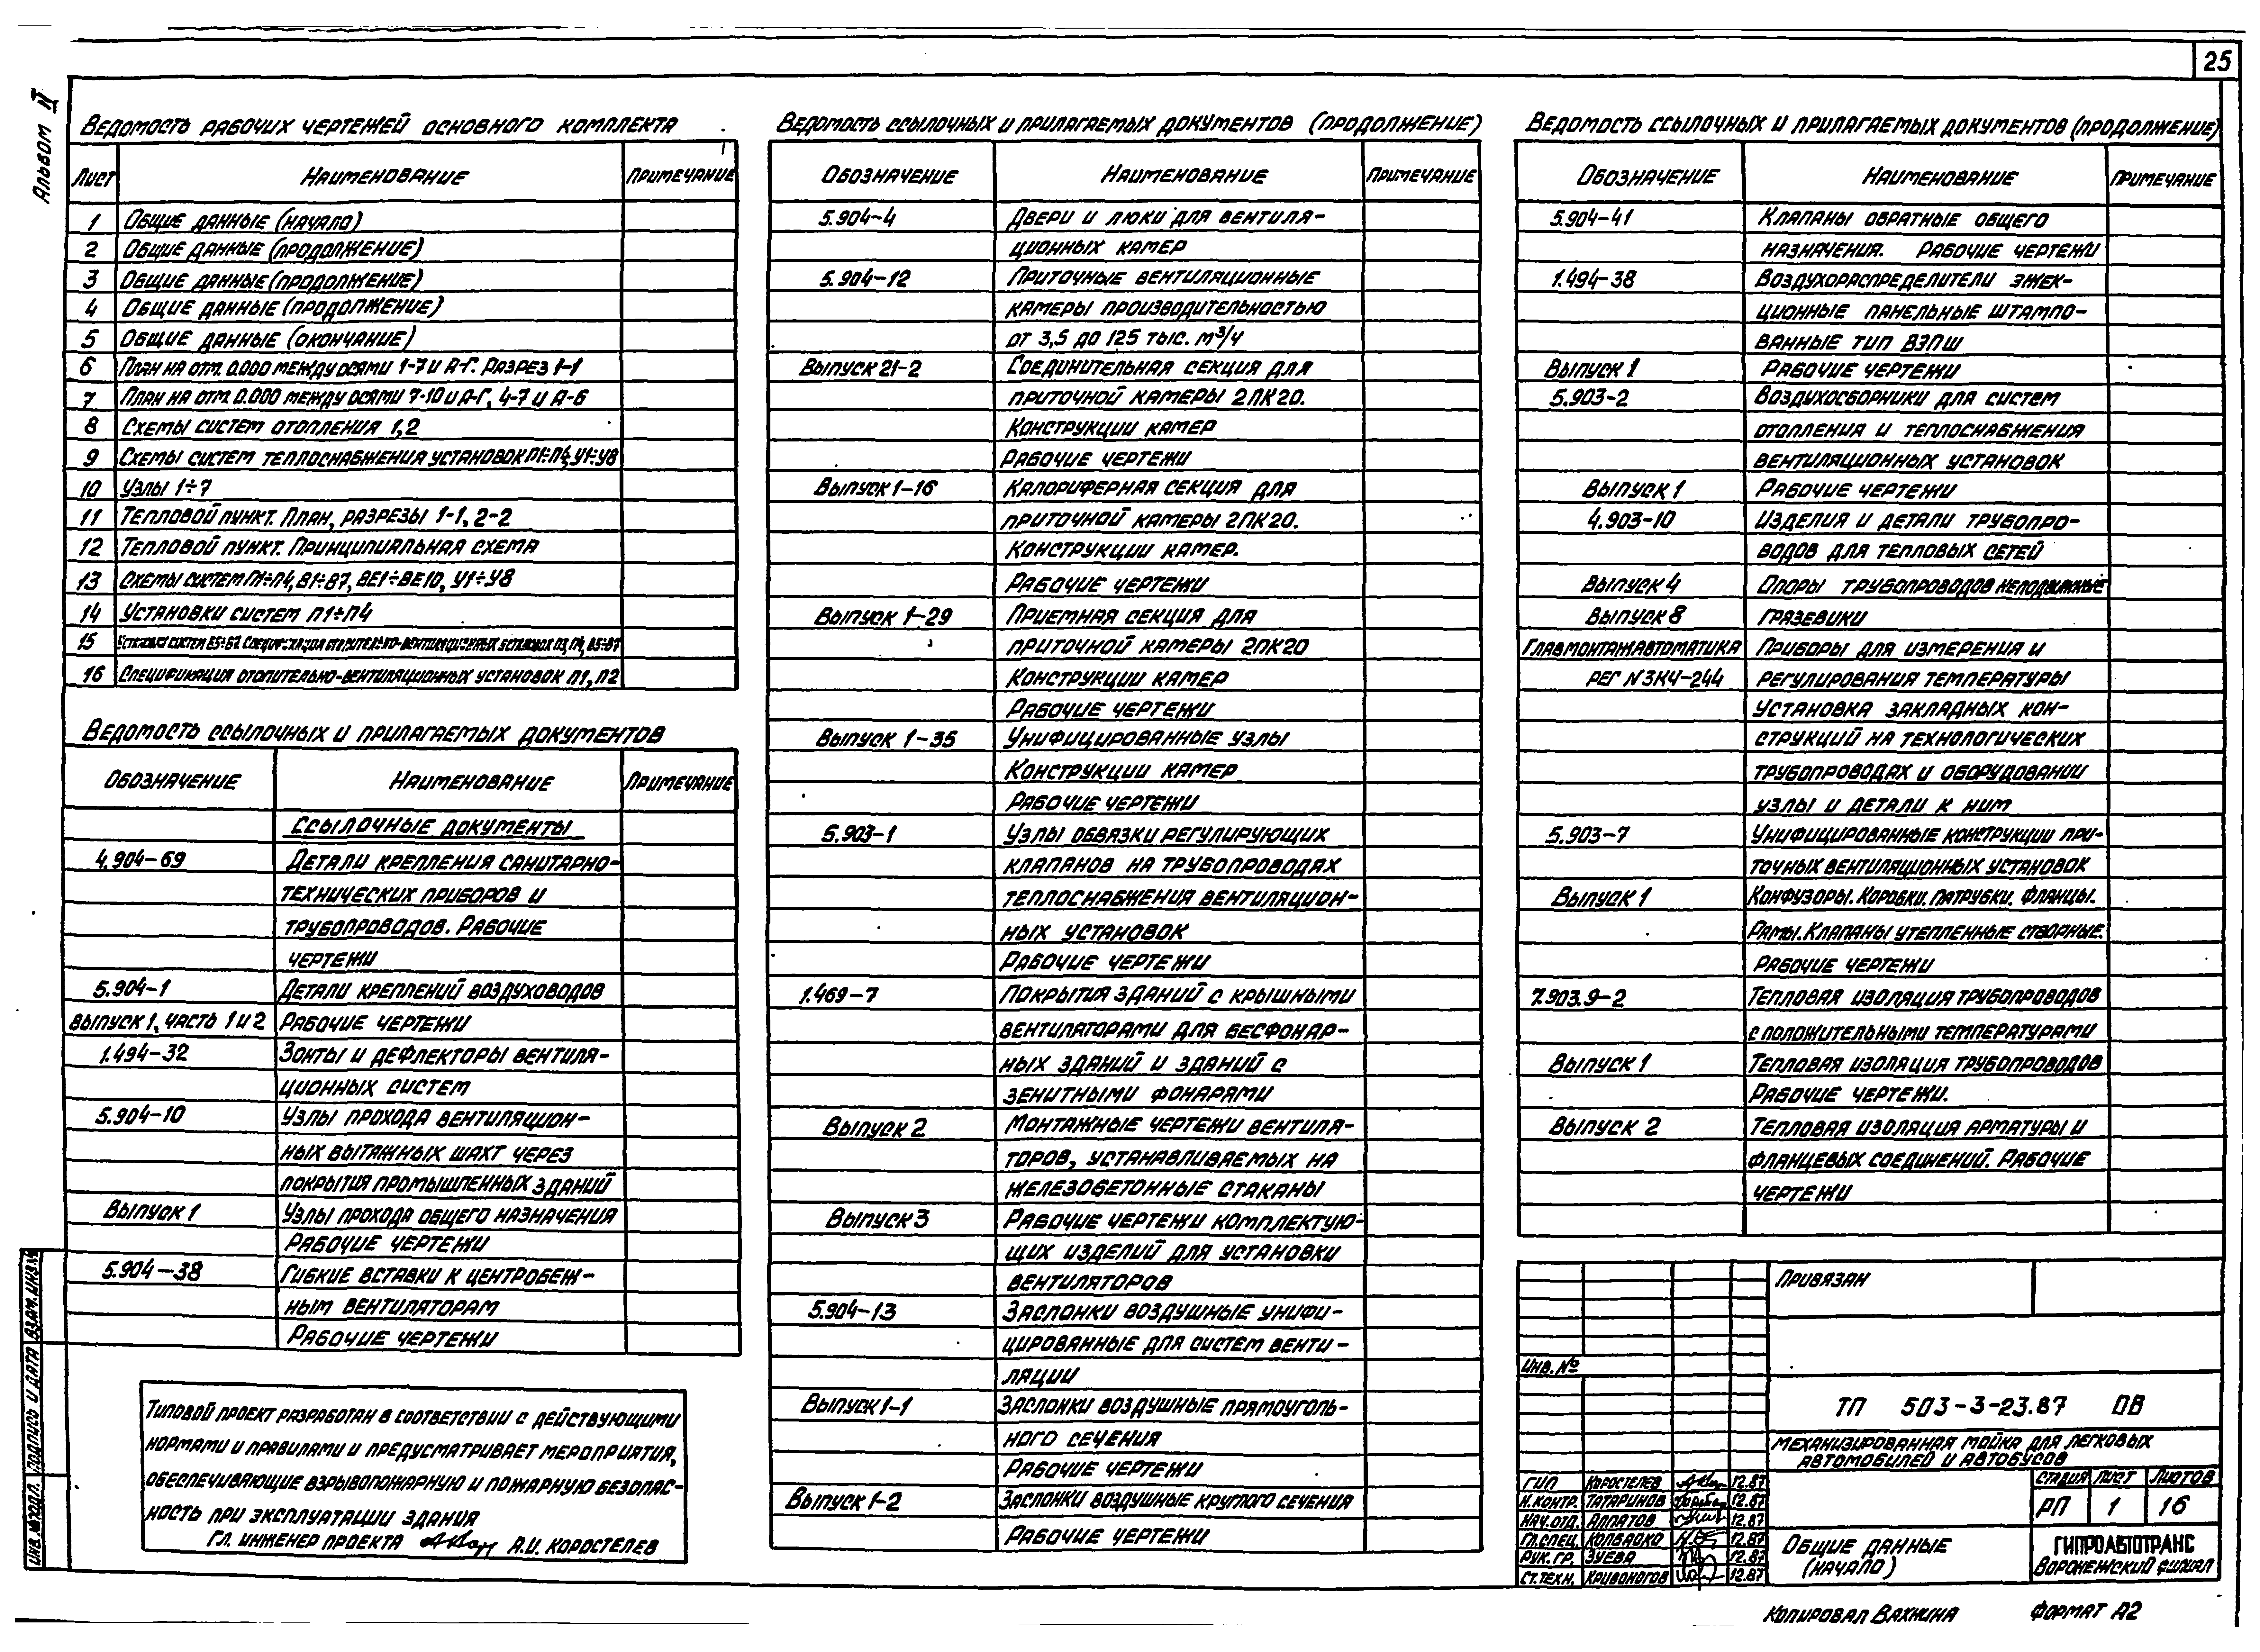 25
Альбом II
Ведомость рабочих чертежей основного комплекта
Лист Наименование Примечание
1 Общие данные (начало)
2 Общие данные (продолжение)
3 Общие данные (продолжение)
4 Общие данные (продолжение)
5 Общие данные (окончание)
6 План на отм. 0.000 между осями 1-7 и А-Г. Разрез 1-1
7 План на отм. 0.000 между осями 7-10 и А-Г, 4-7 и А-Б
8 Схемы систем отопления 1,2
9 Схемы систем теплоснабжения установок П1÷П4, У1÷У8
10 Узлы 1÷7
11 Тепловой пункт. План, разрезы 1-1, 2-2
12 Тепловой пункт. Принципиальная схема
13 Схемы систем П1÷П4, В1÷В7, ВЕ1÷ВЕ10, У1÷У8
14 Установки систем П1÷П4
15 отопительно-вентиляционных установок П3, П4, В5÷В7
16 Спецификация отопительно-вентиляционных установок П1, П2
Ведомость ссылочных и прилагаемых документов
Обозначение Наименование Примечание
Ссылочные документы
4.904-69 Детали крепления санитарно-
технических приборов и
трубопроводов. Рабочие
чертежи
5.904-1 Детали креплений воздуховодов
выпуск 1, часть 1 и 2 Рабочие чертежи
1.494-32 Зонты и дефлекторы вентиля-
ционных систем
5.904-10 Узлы прохода вентиляцион-
ных вытяжных шахт через
покрытия промышленных зданий
Выпуск 1 Узлы прохода общего назначения
Рабочие чертежи
5.904-38 Гибкие вставки к центробеж-
ным вентиляторам
Рабочие чертежи
Типовой проект разработан в соответствии с действующими
нормами и правилами и предусматривает мероприятия,
обеспечивающие взрывопожарную и пожарную безопас-
ность при эксплуатации здания
Гл. инженер проекта А.И. Коростелев
Ведомость ссылочных и прилагаемых документов (продолжение)
Обозначение Наименование Примечание
5.904-4 Двери и люки для вентиля-
ционных камер
5.904-12 Приточные вентиляционные
камеры производительностью
от 3,5 до 125 тыс. м³/ч
Выпуск 21-2 Соединительная секция для
приточной камеры 2ПК20.
Конструкции камер
Рабочие чертежи
Выпуск 1-16 Калориферная секция для
приточной камеры 2ПК20.
Конструкции камер.
Рабочие чертежи
Выпуск 1-29 Приемная секция для
приточной камеры 2ПК20
Конструкции камер
Рабочие чертежи
Выпуск 1-35 Унифицированные узлы
Конструкции камер
Рабочие чертежи
5.903-1 Узлы обвязки регулирующих
клапанов на трубопроводах
теплоснабжения вентиляцион-
ных установок
Рабочие чертежи
1.469-7 Покрытия зданий с крышными
вентиляторами для бесфонар-
ных зданий и зданий с
зенитными фонарями
Выпуск 2 Монтажные чертежи вентиля-
торов, устанавливаемых на
железобетонные стаканы
Выпуск 3 Рабочие чертежи комплектую-
щих изделий для установки
вентиляторов
5.904-13 Заслонки воздушные унифи-
цированные для систем венти-
ляции
Выпуск 1-1 Заслонки воздушные прямоуголь-
ного сечения
Рабочие чертежи
Выпуск 1-2 Заслонки воздушные круглого сечения
Рабочие чертежи
Ведомость ссылочных и прилагаемых документов (продолжение)
Обозначение Наименование Примечание
5.904-41 Клапаны обратные общего
назначения. Рабочие чертежи
1.494-38 Воздухораспределители эжек-
ционные панельные штампо-
ванные тип ВЭПш
Выпуск 1 Рабочие чертежи
5.903-2 Воздухосборники для систем
отопления и теплоснабжения
вентиляционных установок
Выпуск 1 Рабочие чертежи
4.903-10 Изделия и детали трубопро-
водов для тепловых сетей
Выпуск 4 Опоры трубопроводов неподвижные
Выпуск 8 Грязевики
Главмонтажавтоматика Приборы для измерения и
рег N ЗК4-244 регулирования температуры
Установка закладных кон-
струкций на технологических
трубопроводах и оборудовании
узлы и детали к ним
5.903-7 Унифицированные конструкции при-
точных вентиляционных установок
Выпуск 1 Конфузоры. Коробки. Патрубки. Фланцы.
Рамы. Клапаны утепленные створные.
Рабочие чертежи
7.903.9-2 Тепловая изоляция трубопроводов
с положительными температурами
Выпуск 1 Тепловая изоляция трубопроводов
Рабочие чертежи.
Выпуск 2 Тепловая изоляция арматуры и
фланцевых соединений. Рабочие
чертежи
Привязан
Инв. №
ТП 503-3-23.87 ОВ
Механизированная мойка для легковых
автомобилей и автобусов
Стадия Лист Листов
РП 1 16
ГИП Коростелев 12.87
Н.контр. Татаринов 12.87
Нач.отд. Алпатов 12.87
Гл.спец. Колбаско 12.87
Рук.гр. Зуева 12.87
Ст.техн. Кривоногов 12.87
Общие данные
(начало)
ГИПРОАВТОТРАНС
Воронежский филиал
Копировал Вахнина Формат А2
Инв.№подл. Подпись и дата Взам.инв.№